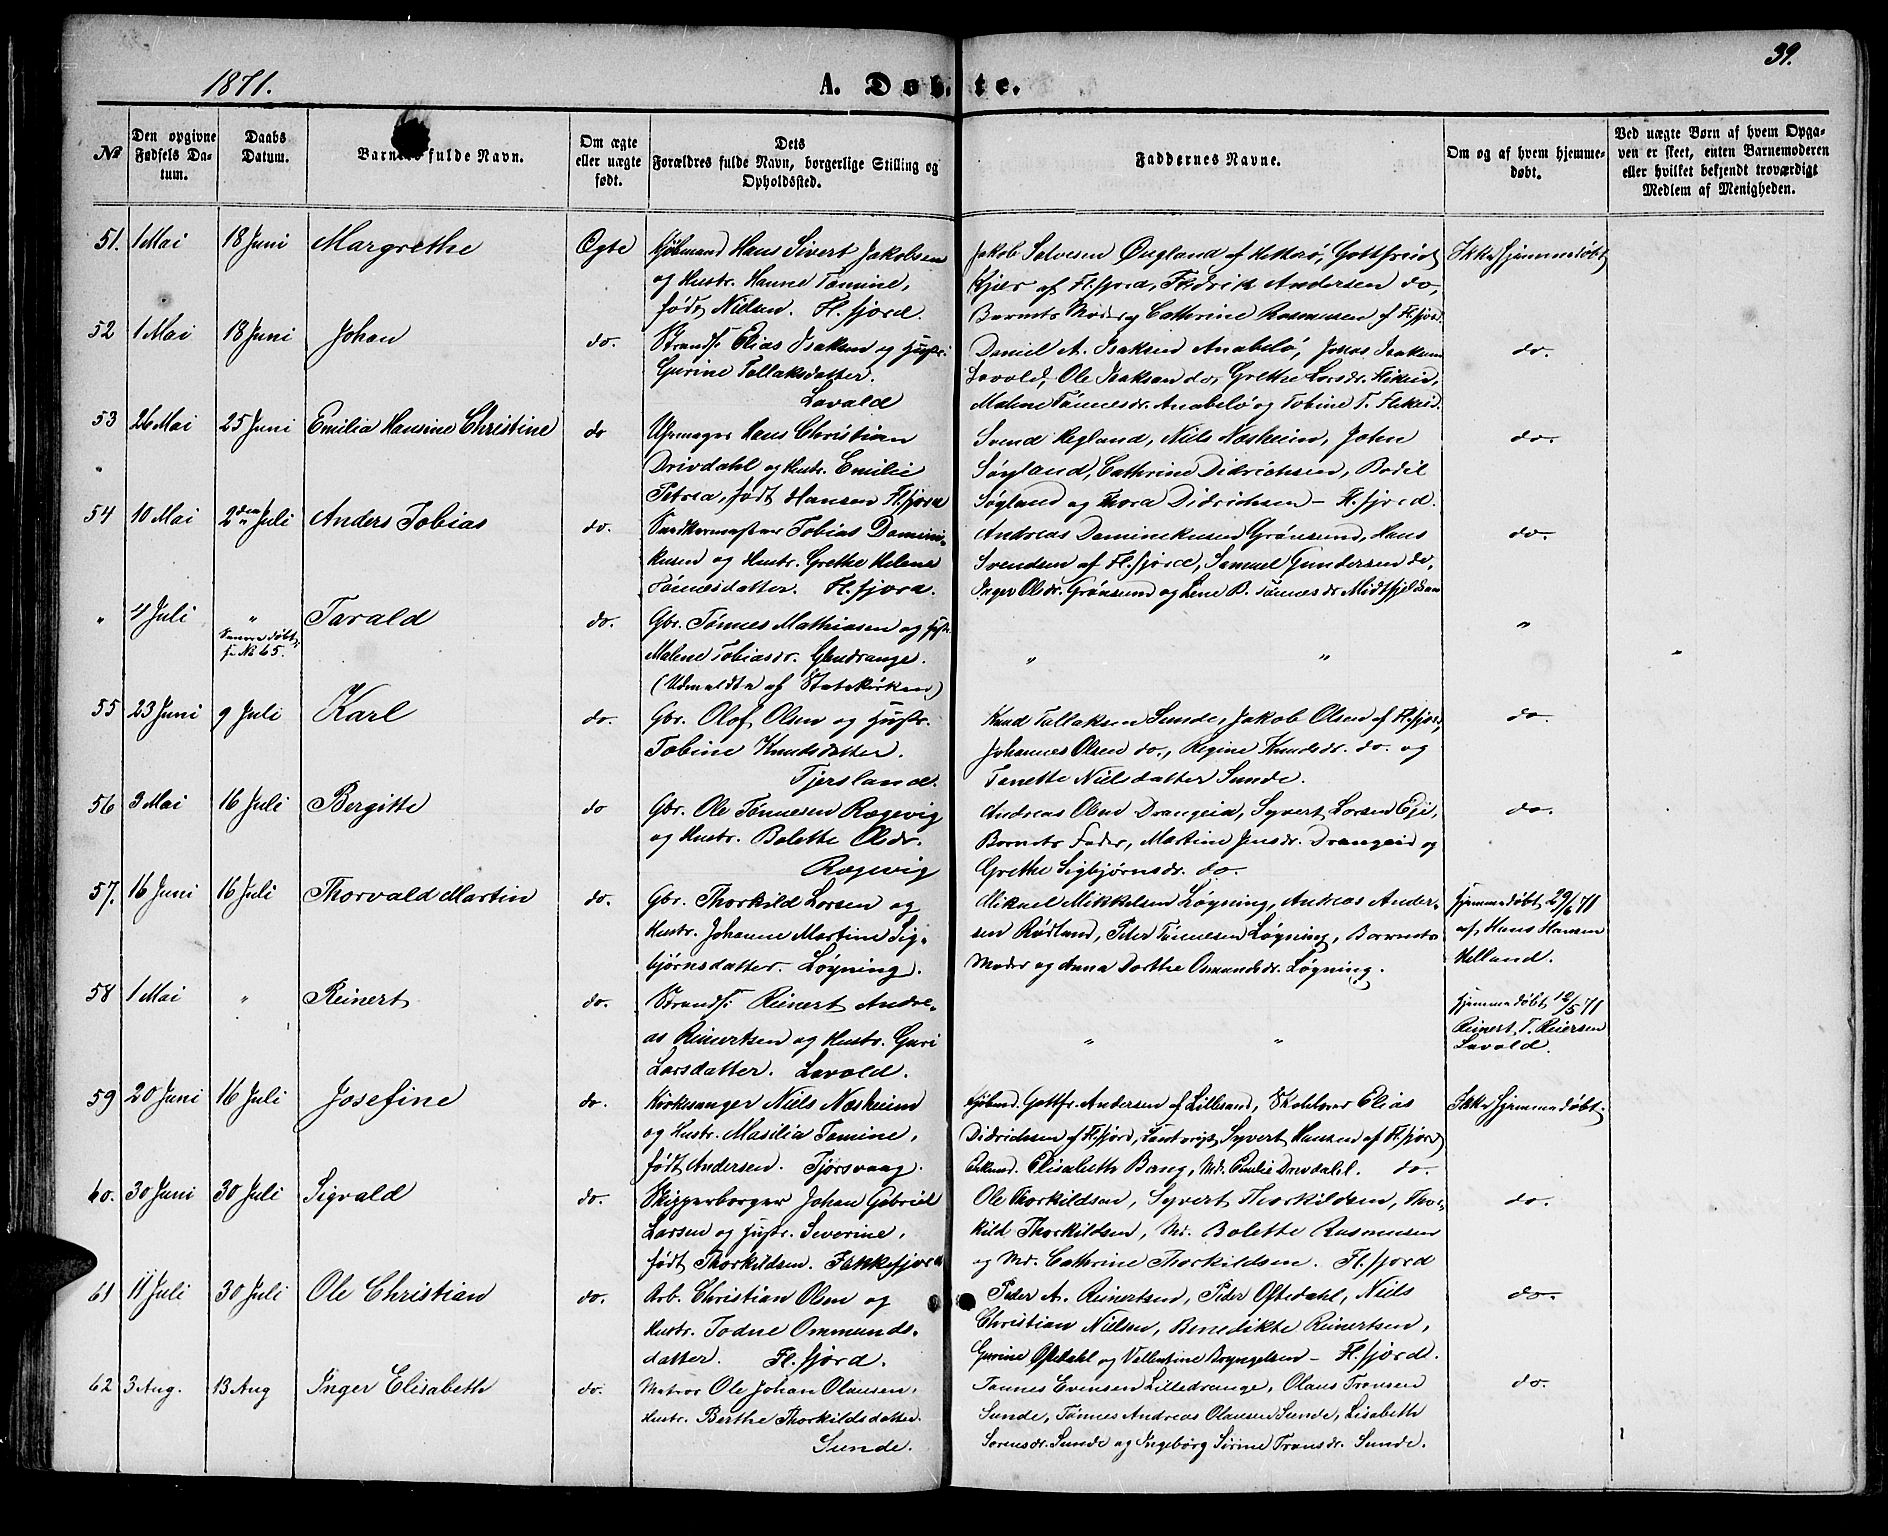 39.
1871.
A. Døbte.
№
Den opgivne Fødsels Datum.
Daabs Datum.
Barnets fulde Navn.
Om ægte eller uægte født.
Dets Forældres fulde Navn, borgerlige Stilling og Opholdssted.
Faddernes Navne.
Om og af hvem hjemmedøbt.
Ved uægte Børn af hvem Opgaven er skeet, enten Barnemoderen eller hvilket bekjendt troværdigt Medlem af Menigheden.
51. 1 Mai 18 Juni Margrethe Ægte
Kjøbmand Hans Sivert Jakobsen
og Hustr. Hanne Tomine,
født Nielsen. Fl.fjord.
Jakob Salvesen Øugland af Hitterø, Gottfried
Kjær af Fl.fjord, Fredrik Andersen do,
Barnets Moder og Cathrine Rasmussen af Fl.fjord.
Ikke hjemmedøbt
52 1 Mai 18 Juni Johan do.
Strands. Elias Isaksen og Hustr.
Gurine Tollaksdatter.
Lavold
Daniel A. Isaksen Anabelø, Jonas Isaksen
Lavold, Ole Isaksen do, Grethe Larsdr. Flikeid,
Malene Tønnesdr. Anabelø og Tobine T. Flikeid.
do.
53 26 Mai 25 Juni Emilia Hansine Christine do
Uhrmager Hans Christian
Drivdahl og Hustr. Emilie
Petrea, født Hansen Fl.fjord
Svend Hegland, Niels Næsheim, John
Søyland, Cathrine Didrichsen, Bodil
Søyland og Thora Didrichsen — Fl.fjord.
do.
54 10 Mai 2den Juli Anders Tobias do.
Tobias Domini-
kusen og Hustr. Grethe Helene
Tønnesdatter. Fl.fjord.
Andreas Dominikusen Grønsund, Hans
Svendsen af Fl.fjord, Samuel Gundersen do,
Inger Olsdr. Grønsund og Lene B. Tønnesdr. Midtfjeldsaa
do.
" 4 Juli " Tarald do.
Samme døbt
f. No 65.
Gbr. Tønnes Mathiasen og Hustr.
Malene Tobiasdr. Glendrange.
(Udmeldte af Statskirken)
" " "
"
55 23 Juni 9 Juli Karl do.
Gbr. Olof Olsen og Hustr.
Tobine Knudsdatter.
Tjersland.
Knud Tollaksen Sunde, Jakob Olsen af Fl.fjord,
Johannes Olsen do., Regine Knudsdr. do. og
Tanette Nielsdatter Sunde.
do.
56 3 Mai 16 Juli Bergitte do
Gbr. Ole Tønnesen Rægevig
og Hustr. Bolette Olsdr.
Rægevig
Andreas Olsen Drangeid, Syvert Larsen Eje,
Barnets Fader, Martine Jensdr. Drangeid og
Grethe Sigbjørnsdr. do.
do.
57. 16 Juni 16 Juli Thorvald Martin do.
Gbr. Thorkild Larsen og
Hustr. Johanne Martine Sig-
bjørnsdatter. Løyning.
Mikael Mikkelsen Løyning, Andreas Ander-
sen Rødland, Peter Tønnesen Løyning, Barnets
Moder og Anna Dorthe Osmundsdr. Løyning.
Hjemmedøbt 29/6 71
af, Hans Hansen
Helland.
58 1 Mai " Reinert do.
Strands. Reinert Andre-
as Reinertsen og Hustr. Guri
Larsdatter. Lavold.
" "
Hjemmedøbt 12/5 71
Reinert T. Reiersen
Lavold.
59 20 Juni 16 Juli Josefine do.
Kirkesanger Niels Næsheim
og Hustr. Masilia Tomine,
født Andersen. Tjørsvaag.
Kjøbmd. Gottfr. Andersen af Lillesand, Skolelærer Elias
Didrichsen af Fl.fjord, Syvert Hansen af Fl.fjord
Elisabeth Bang, Md. Emilie Drivdahl. do.
Ikke hjemmedøbt.
60. 30 Juni 30 Juli Sigvald do.
Skipperborger Johan Gabriel
Larsen og Hustr. Severine,
født Thorkildsen. Flekkefjord
Ole Thorkildsen, Syvert Thorkildsen, Thor-
kild Thorkildsen, Md. Bolette Rasmussen
og Md. Cathrine Thorkildsen. Fl.fjord
do.
61 11 Juli 30 Juli Ole Christian do.
Arb. Christian Olsen og
Hustr. Todne Ommunds-
datter. Fl.fjord.
Peder A. Reinertsen, Peder Oftedahl, Niels
Christian Nielsen, Benedikte Reinertsen,
Gurine Oftedahl og Vallentine Bryngelsen — Fl.fjord.
do.
62 3 Aug. 13 Aug Inger Elisabeth do.
Matros Ole Johan Olausen,
Hustr. Berthe Thorkildsdatter.
Sunde.
Tønnes Evensen Lilledrange, Olaus Tronsen
Sunde, Tønnes Andreas Olausen Sunde, Lisabeth
Sørensdr. Sunde og Ingeborg Sirine Tronsdr. Sunde.
do.